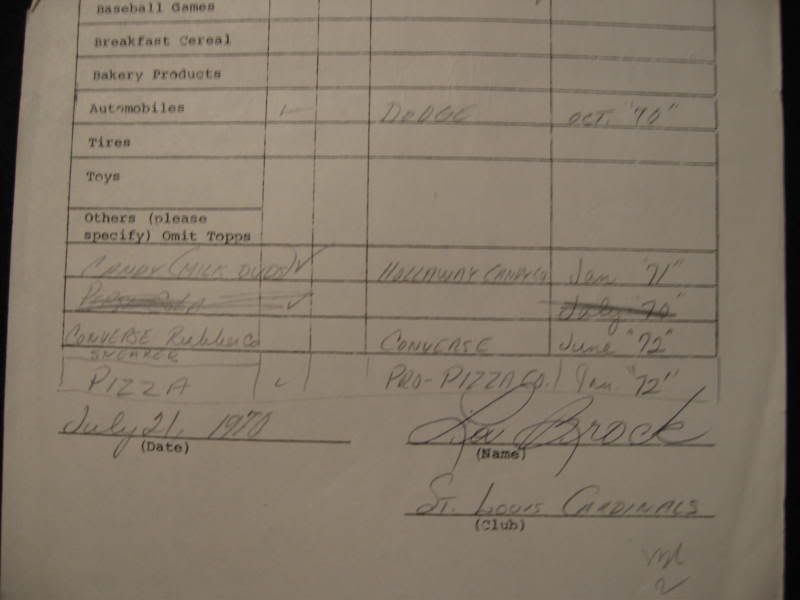 Baseball Games
Breakfast Cereal
Bakery Products
Automobiles ✓ DODGE OCT. "70"
Tires
Toys
Others (please
specify) Omit Topps
CANDY (MILK DUDS) ✓ HOLLAWAY CANDY CO Jan "71"
✓ July "70"
CONVERSE Rubber Co CONVERSE June "72"
SNEAKER
PIZZA ✓ PRO-PIZZA CO. Jan "72"
July 21, 1970 Lou Brock
(Date) (Name)
ST. LOUIS CARDINALS
(Club)
2